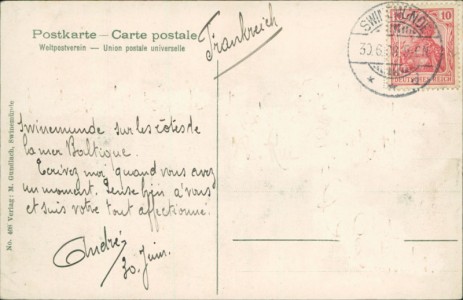 Postkarte – Carte postale
Weltpostverein — Union postale universelle
Frankreich
SWINEMÜNDE
30.6.
10
DEUTSCHES REICH
Swinemunde sur les côtes de
la mer Baltique.
Ecrivez moi quand vous avez
un moment. Pense bien a vous
et suis votre tout affectionné.
André
30 Juin.
No. 498 Verlag: M. Gundlach, Swinemünde